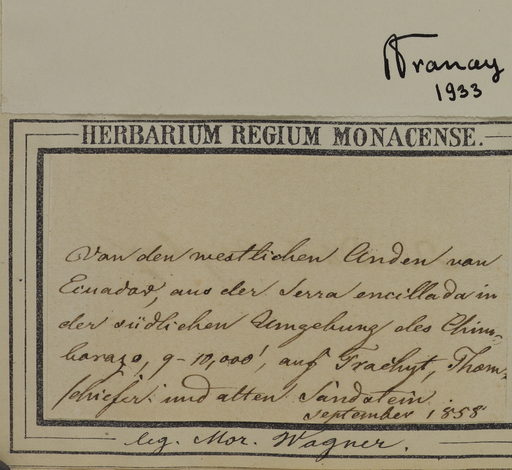 Tranay
1933
HERBARIUM REGIUM MONACENSE.
Von den westlichen Anden von
Ecuador, aus der Serra encillada in
der südlichen Umgebung des Chim-
borazo, 9-10,000', auf Trachyt, Thon-
schiefer und alten Sandstein.
september 1858
leg. Mor. Wagner.